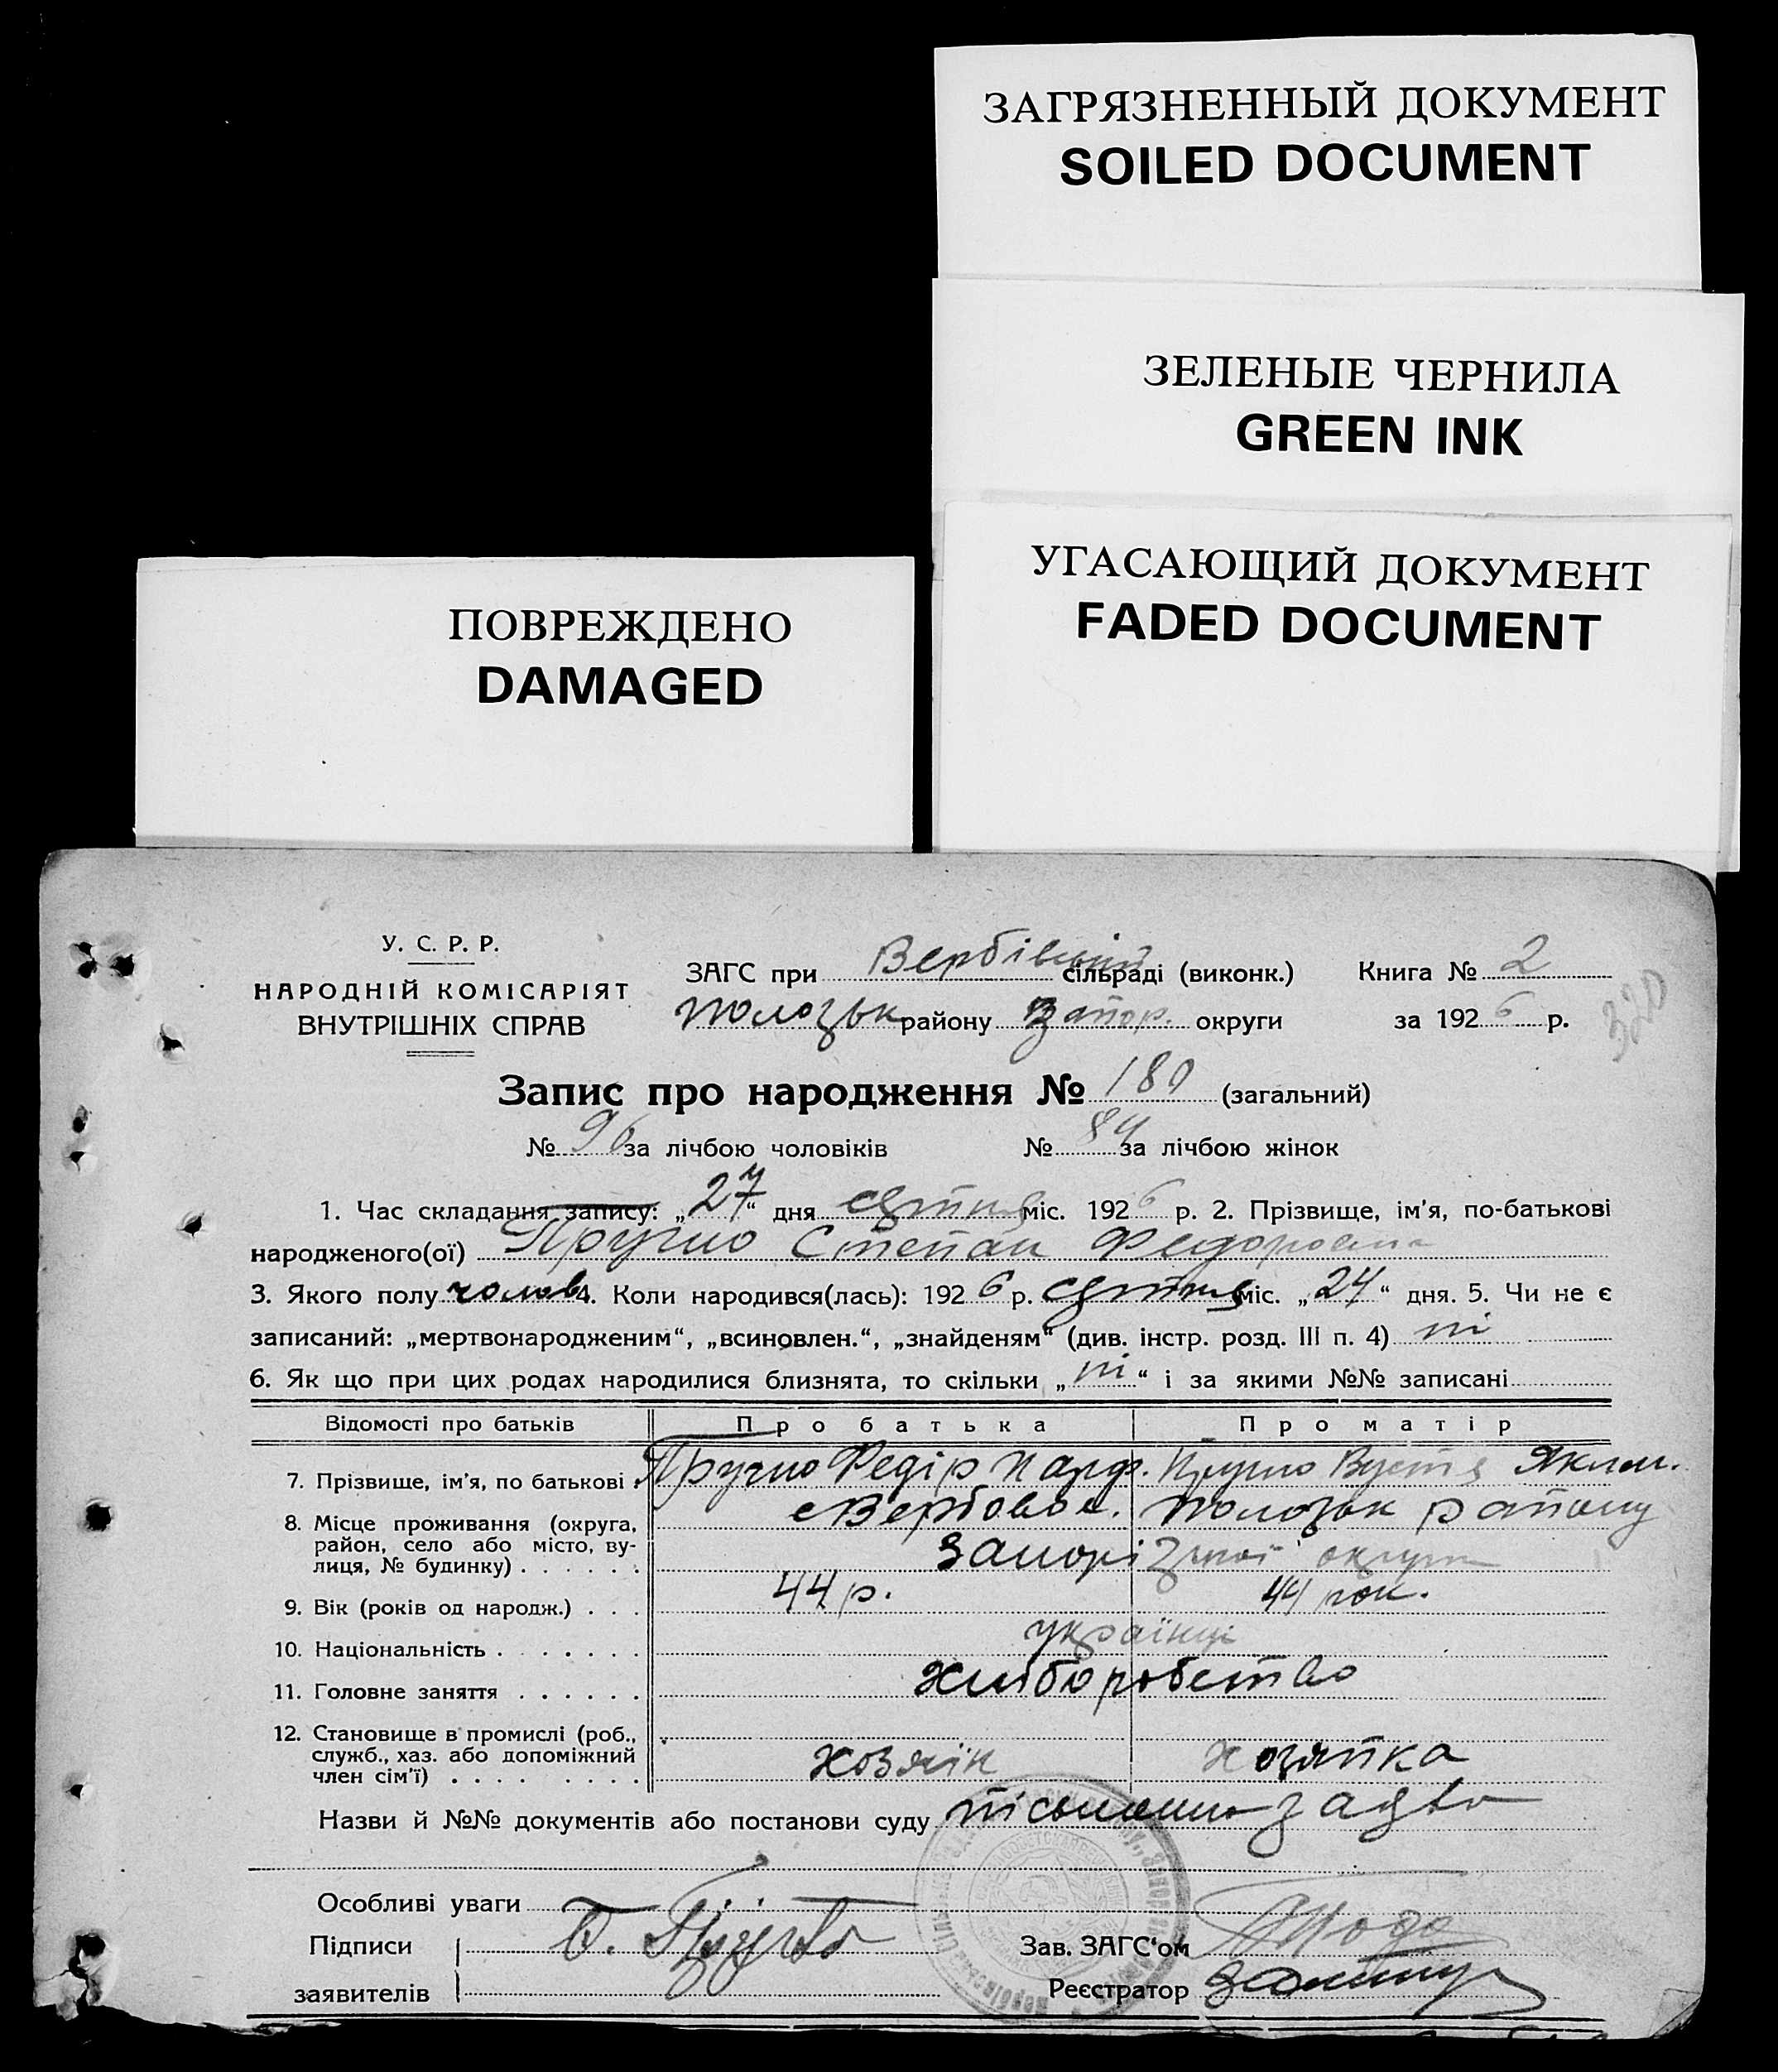 ЗАГРЯЗНЕННЫЙ ДОКУМЕНТ
SOILED DOCUMENT
ЗЕЛЕНЫЕ ЧЕРНИЛА
GREEN INK
УГАСАЮЩИЙ ДОКУМЕНТ
FADED DOCUMENT
ПОВРЕЖДЕНО
DAMAGED
У. С. Р. Р.
НАРОДНІЙ КОМІСАРІЯТ
ВНУТРІШНІХ СПРАВ
ЗАГС при Вербівській сільраді (виконк.) Книга № 2
Полозьк району Запор. округи за 1926 р.
320
Запис про народження № 180 (загальний)
№ 96 за лічбою чоловіків № 84 за лічбою жінок
1. Час складання запису: „27“ дня міс. 1926 р. 2. Прізвище, ім’я, по-батькові
народженого(ої) Степан Федорович
3. Якого полу чолов 4. Коли народився(лась): 1926 р. міс. „24“ дня. 5. Чи не є
записаний: „мертвонародженим“, „всиновлен.“, „знайденям“ (див. інстр. розд. III п. 4) ні
6. Як що при цих родах народилися близнята, то скільки „ні“ і за якими №№ записані
Відомості про батьків Про батька Про матір
7. Прізвище, ім’я, по батькові Федір Парф. Вустя Яким.
8. Місце проживання (округа, с Вербове. Полозьк району
район, село або місто, ву-
лиця, № будинку) Запорізької округи
9. Вік (років од народж.) 44 р. 44 рок.
10. Національність українці
11. Головне заняття хліборобство
12. Становище в промислі (роб.,
служб., хаз. або допоміжний хозяїн хозяйка
член сім’ї)
Назви й №№ документів або постанови суду
Особливі уваги
Підписи
Зав. ЗАГС‘ом
заявителів
Реєстратор